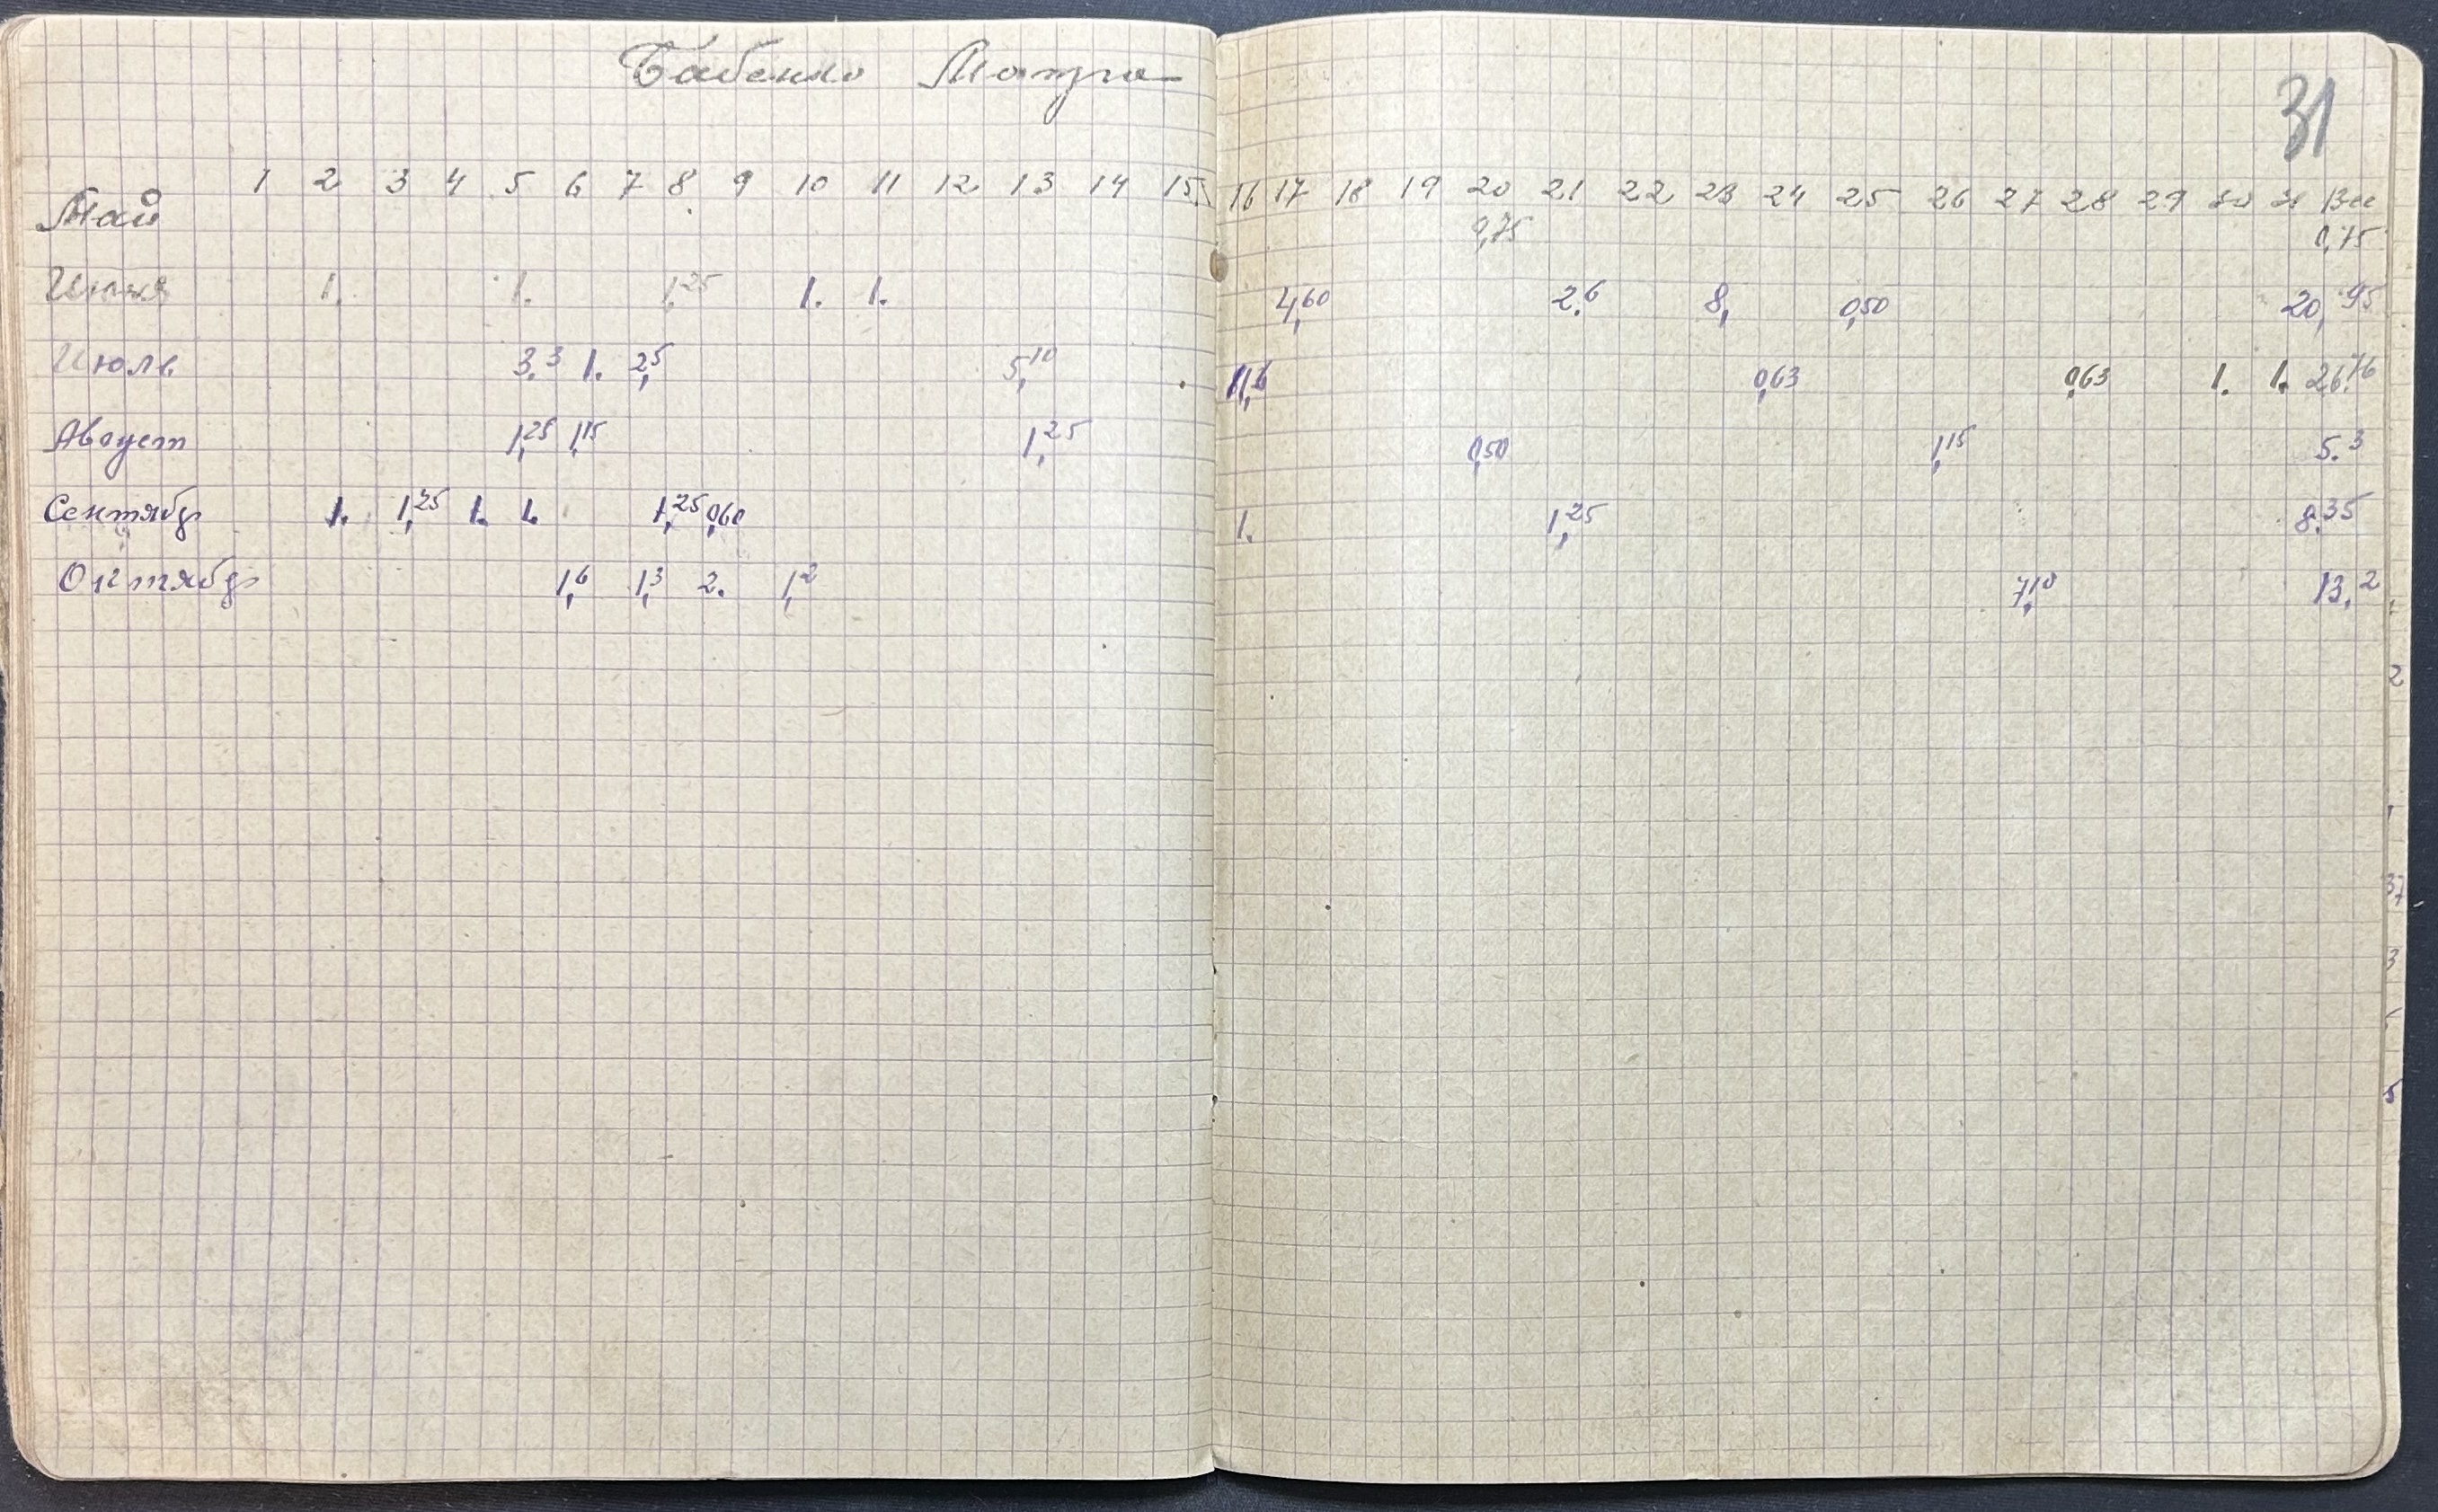 Бабенко Мотря
31
1 2 3 4 5 6 7 8 9 10 11 12 13 14 15 16 17 18 19 20 21 22 23 24 25 26 27 28 29 30 31 Все
Май 0,75 0,75
Июня 1. 1. 1,25 1. 1. 4,60 2.6 8, 0,50 20,95
Июль 3.3 1. 2,5 5,10 11,6 0,63 0,63 1. 1. 26.76
Август 1,25 1,15 1,25 0,50 1,15 5.3
Сентябр 1. 1,25 1. 1. 1,25 0,60 1. 1,25 8.35
Октябр 1,6 1,3 2. 1,2 7,10 13,2
2
37
3
5